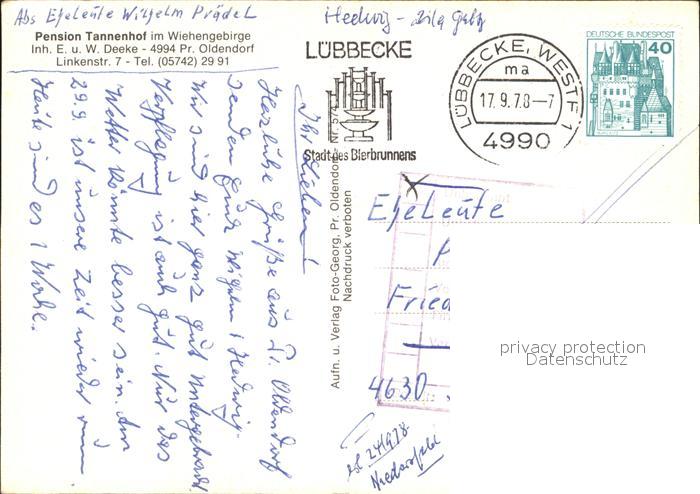 Abs Eheleute Wilhelm Prädel
Hedwig -
Pension Tannenhof im Wiehengebirge
Inh. E. u. W. Deeke - 4994 Pr. Oldendorf
Linkenstr. 7 - Tel. (05742) 29 91
LÜBBECKE
Stadt des Bierbrunnens
LÜBBECKE, WESTF 1
ma
17. 9. 78 - 7
4990
DEUTSCHE BUNDESPOST
40
Ihr Lieben!
Herzliche Grüße aus Pr. Oldendorf
senden Euch Wilhelm & Hedwig.
Wir sind hier ganz gut untergebracht
Verpflegung ist auch gut. Nur das
Wetter könnte besser sein. Am
29.9 ist unsere Zeit wieder rum
Heute sind es 1 Woche.
Aufn. u. Verlag Foto-Georg, Pr. Oldendorf
Nachdruck verboten
Eheleute
Fried
4630
privacy protection
Datenschutz